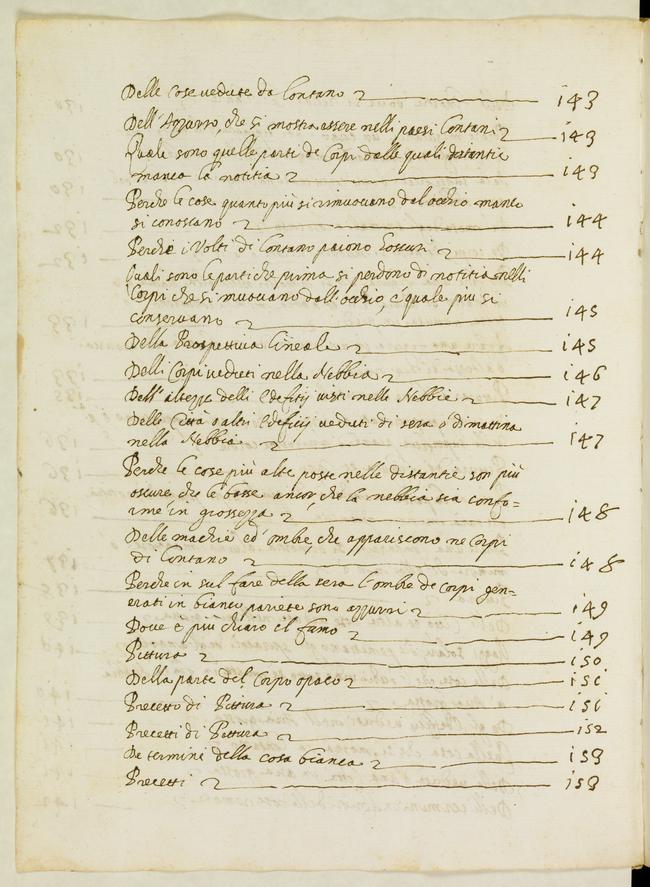 Delle cose vedute da Lontano 143
Dell' Azzurro, che si mostra essere nelli paesi Lontani 143
Quale sono quelle parti de Corpi dalle quali distantie
manca la notitia 143
Perche le cose quanto più si rimuovano dal occhio manco
si conoscano 144
Perche i Volti di Lontano paiono Loscuri 144
Quali sono le parti che prima si perdono di notitia nelli
Corpi che si muovano dall'occhio, e quale più si
conservano 145
Della Prospettiva Lineale 145
Delli Corpi veduti nella Nebbia 146
Dell' altezza delli Edifitij visti nelle Nebbie 147
Delle Città o altri Edificij veduti di sera o dimattina
nella Nebbia 147
Perche le cose più alte poste nelle distantie son più
oscure che le basse ancor, che la nebbia sia confo=
rme in grossezza 148
Delle machie ed' ombre, che appariscono ne Corpi
di Lontano 148
Perche in sul fare della sera l'ombre de corpi gen=
erati in bianco pariete sono azzurri 149
Dove è più chiaro il fumo 149
Pittura 150
Della parte del Corpo opaco 151
Precetto di Pittura 151
Precetti di Pittura 152
De termini della cosa bianca 153
Precetti 153